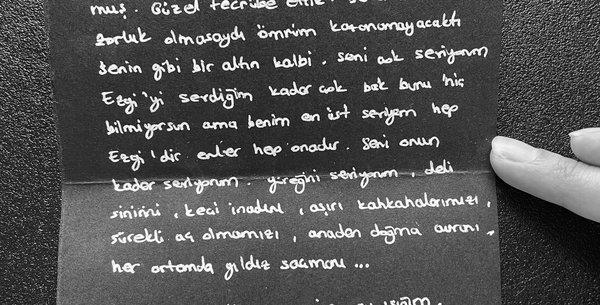 muş. Güzel tecrübe
zorluk olmasaydı ömrüm kazanamayacaktı
senin gibi bir altın kalbi. Seni çok seviyorum
Ezgi'yi sevdiğim kadar çok bak bunu hiç
bilmiyorsun ama benim en üst seviyem hep
Ezgi'dir evler hep onadır. Seni onun
kadar seviyorum. yüreğini seviyorum, deli
sinirini, keçi inadını, aşırı kahkahalarımızı,
sürekli aç olmamızı, anadan doğma
her ortamda yıldız saçmanı ...